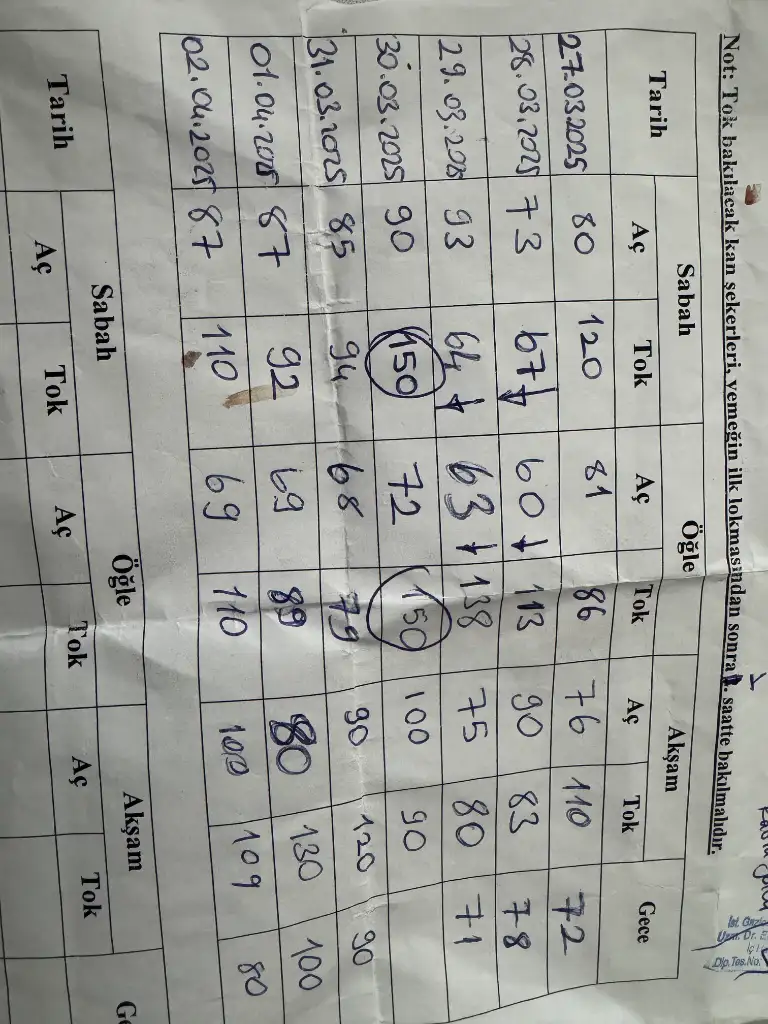 Not: Tok bakılacak kan şekerleri, yemeğin ilk lokmasından sonra 1. saatte bakılmalıdır.
Tarih Sabah Öğle Akşam Gece
Aç Tok Aç Tok Aç Tok
27.03.2025 80 120 81 86 76 110 72
28.03.2025 73 67↓ 60↓ 113 90 83 78
29.03.2025 93 64↓ 63↓ 138 75 80 71
30.03.2025 90 150 72 150 100 90
31.03.2025 85 94 68 79 90 120 90
01.04.2025 87 92 69 89 80 130 100
02.04.2025 87 110 69 110 100 109 80
Tarih Sabah Öğle Akşam
Aç Tok Aç Tok Aç Tok